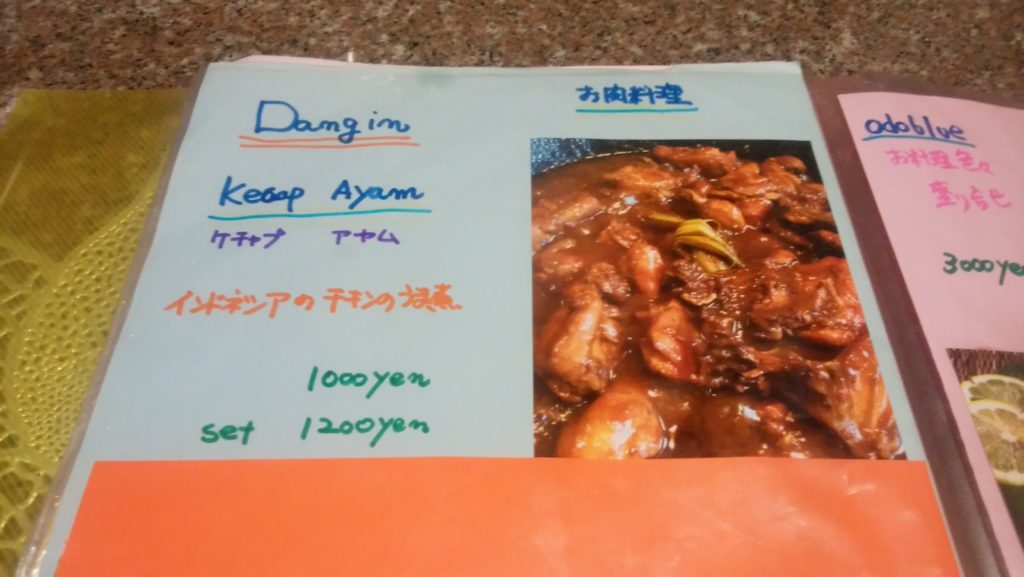 Dangin
お肉料理
Kecap Ayam
ケチャプ アヤム
インドネシアの チキンの
1000yen
set 1200yen
odoblue
お料理色々
盛り合せ
3000yen